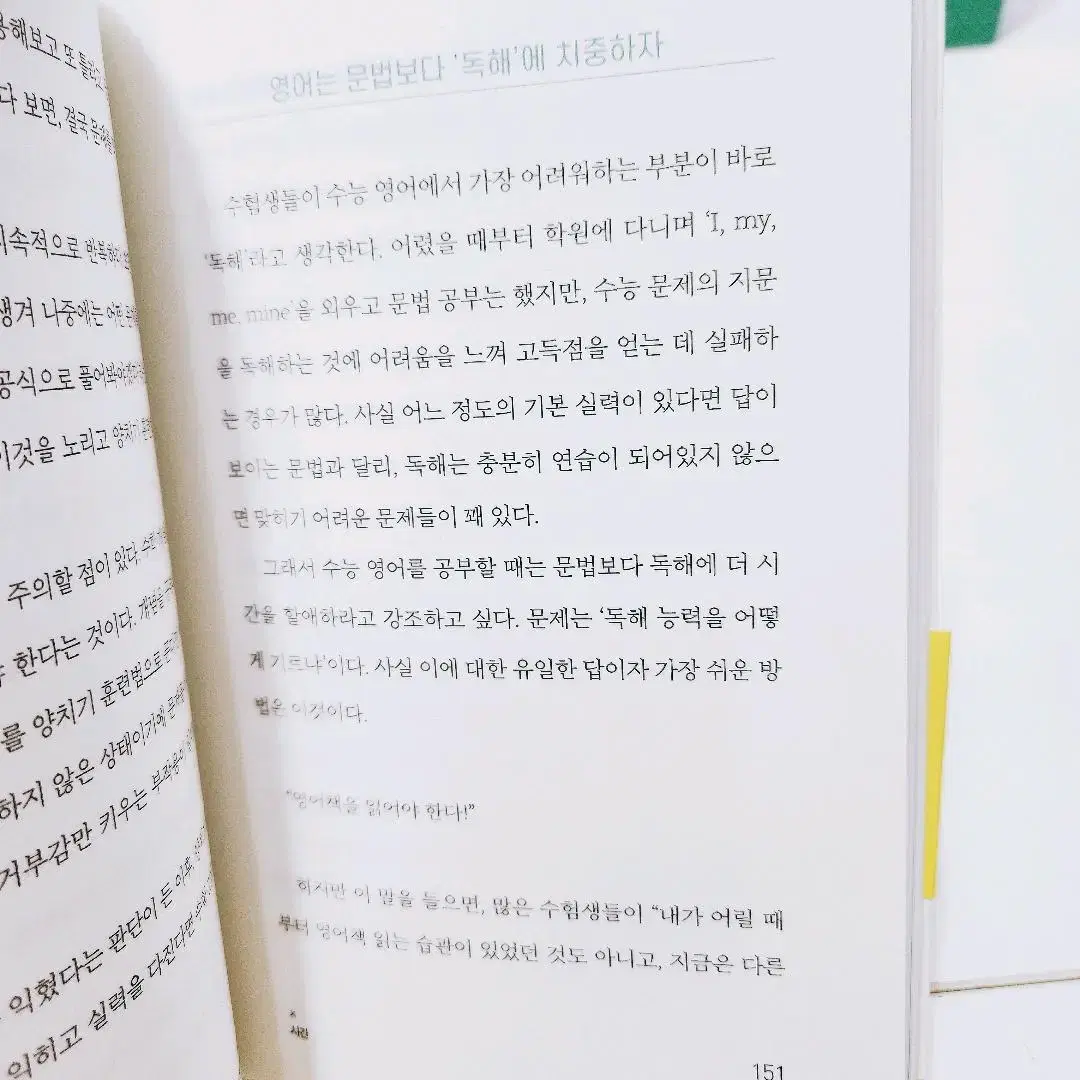 용해보고 또
다 보면, 결국
지속적으로 반복하다
생겨 나중에는 어떤
공식으로
이것을 노리고 양치기
주의할 점이 있다.
한다는 것이다. 개념을
를 양치기 훈련법으로
하지 않은 상태이기에
거부감만 키우는 부작용이
익혔다는 판단이 든 이후,
익히고 실력을 다진다면
영어는 문법보다 '독해'에 치중하자
수험생들이 수능 영어에서 가장 어려워하는 부분이 바로
'독해'라고 생각한다. 어렸을 때부터 학원에 다니며 'I, my,
me, mine'을 외우고 문법 공부는 했지만, 수능 문제의 지문
을 독해하는 것에 어려움을 느껴 고득점을 얻는 데 실패하
는 경우가 많다. 사실 어느 정도의 기본 실력이 있다면 답이
보이는 문법과 달리, 독해는 충분히 연습이 되어있지 않으
면 맞히기 어려운 문제들이 꽤 있다.
그래서 수능 영어를 공부할 때는 문법보다 독해에 더 시
간을 할애하라고 강조하고 싶다. 문제는 '독해 능력을 어떻
게 기르냐'이다. 사실 이에 대한 유일한 답이자 가장 쉬운 방
법은 이것이다.
"영어책을 읽어야 한다!"
하지만 이 말을 들으면, 많은 수험생들이 "내가 어릴 때
부터 영어책 읽는 습관이 있었던 것도 아니고, 지금은 다른
시간
151